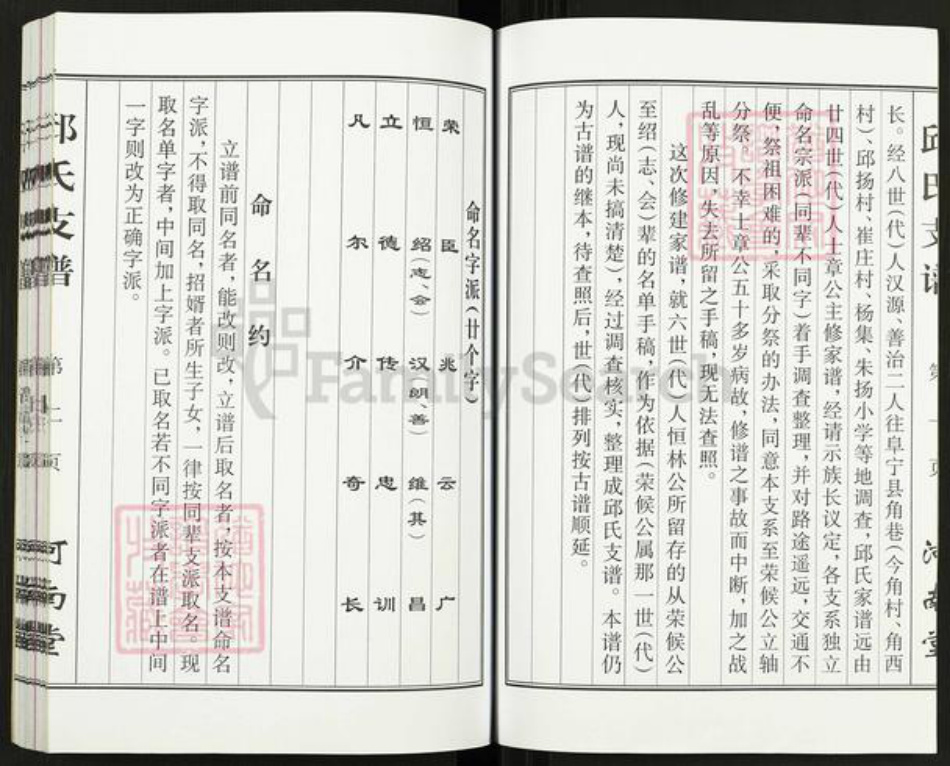 长。经八世(代)人汉源、善治二人往阜宁县角巷(今角村、角西
村)、邱扬村、崔庄村、杨集、朱扬小学等地调查,邱氏家谱远由
廿四世(代)人士章公主修家谱,经请示族长议定,各支系独立
命名宗派(同辈不同字)着手调查整理,并对路途遥远,交通不
便,祭祖困难的,采取分祭的办法,同意本支系至荣候公立轴
分祭。不幸士章公五十多岁病故,修谱之事故而中断,加之战
乱等原因,失去所留之手稿,现无法查照。
这次修建家谱,就六世(代)人恒林公所留存的从荣候公
至绍(志、会)辈的名单手稿,作为依据(荣候公属那一世(代)
人,现尚未搞清楚),经过调查核实,整理成邱氏支谱。本谱仍
为古谱的继本,待查照后,世(代)排列按古谱顺延。
邱氏支谱
河南堂
命名字派(廿个字)
荣臣兆云广
恒绍(志、会)汉(明、善)维(其)昌
立德传忠训
凡尔介奇长
命名约
立谱前同名者,能改则改,立谱后取名者,按本支谱命名
字派,不得取同名,招婿者所生子女,一律按同辈支派取名。现
取名单字者,中间加上字派。已取名若不同字派者在谱上中间
一字则改为正确字派。
邱氏支谱
第二页
河南堂
FamilySearch